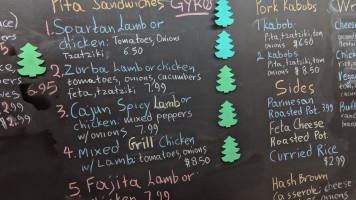 Pita Sandwiches GYRO
1. Spartan Lamb or
chicken: Tomatoes, Onions
Tzatziki 6.50
2. Zorba Lamb or chicken
tomatoes, onions, cucumbers
feta, tzatziki 7.99
3. Cajun Spicy Lamb or
chicken. mixed peppers
w/onions 7.99
4. Mixed Grill Chicken
w/Lamb: tomatoes, onions
$8.50
5 Fajita Lamb or
6.95
2.99
$2.99
Pork Kabobs
1 kabob:
Pita, tzatziki, tom
onions $6.50
2 kabobs
Pita, tzatziki, tom
onions $8.50
Sides
Parmesan
Roasted Pot. 3.99
Feta Cheese
Roasted Pot.
Curried Rice
$2.99
Hash Brown
Casserole: cheese